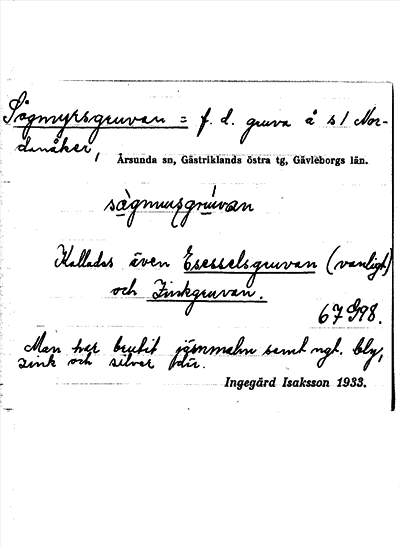 Sögmyrsgruvan = f. d. gruva å s/ Nor-
danåker,
Årsunda sn, Gästriklands östra tg, Gävleborgs län.
Kallades även Esesselsgruvan (vanligt)
och Zinkgruvan.
Man har brutit järnmalm samt ngt. bly,
zink och silver där.
Ingegärd Isaksson 1933.